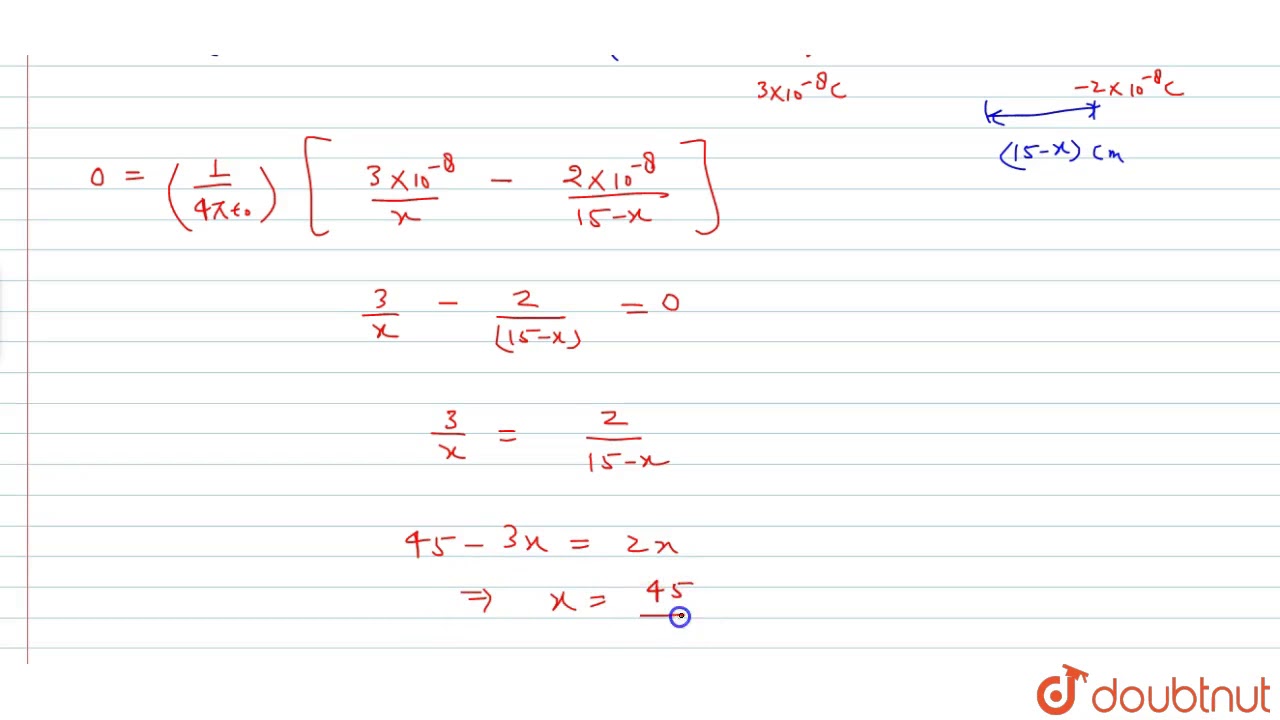 3×10⁻⁸C
-2×10⁻⁸C
(15-x) cm
0 = (1/4πε₀) [ 3×10⁻⁸/x - 2×10⁻⁸/15-x ]
3/x - 2/(15-x) = 0
3/x = 2/15-x
45-3x = 2x
⇒ x = 45
doubtnut